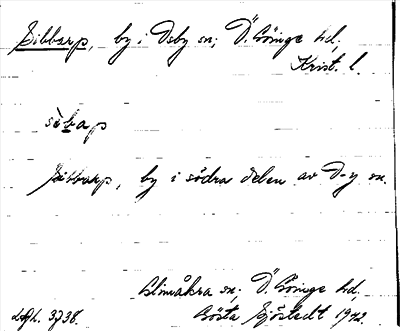 Sibbarp, by i Osby sn; Ö. Göinge hd,
Krist. l.
sèbap
Sibbarp, by i södra delen av O-y sn.
Glimåkra sn; Ö. Göinge hd,
Gösta Sjöstedt 1942.
3738.